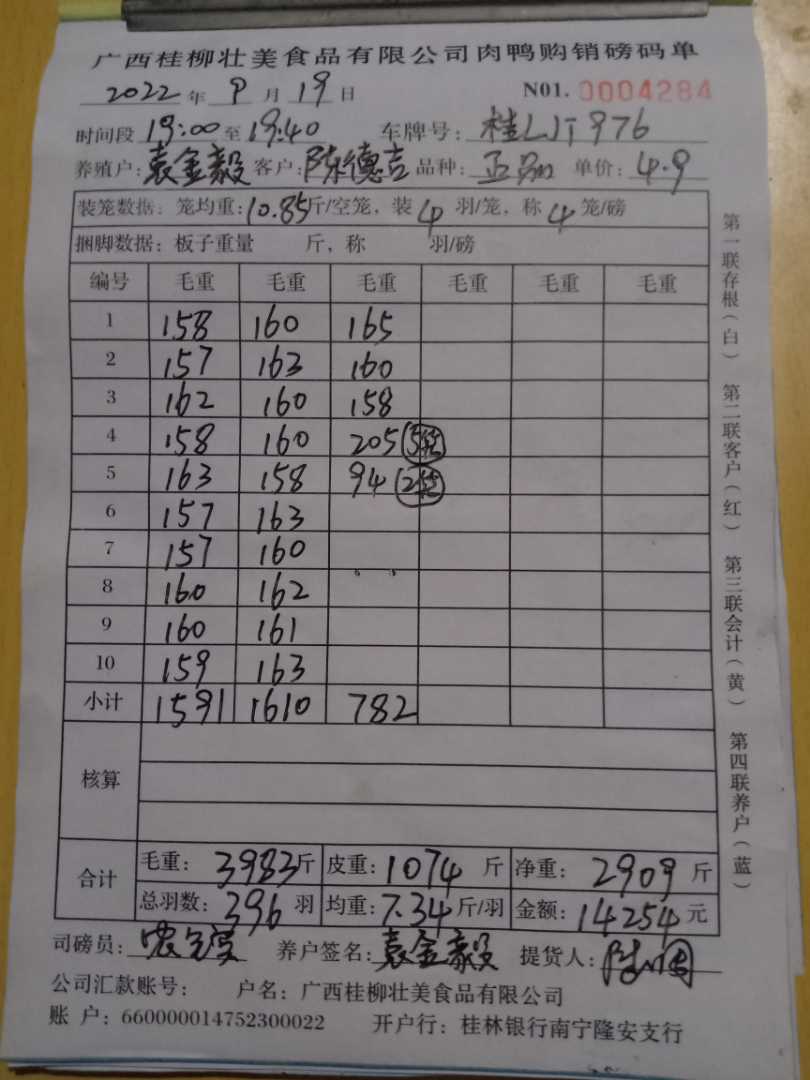 广西桂柳壮美食品有限公司肉鸭购销磅码单
2022年 9月 19日 N01. 0004284
时间段 19:00 至 19:40 车牌号: 桂LJT976
养殖户: 袁金毅 客户: 陈德吉 品种: 单价: 4.9
装笼数据: 笼均重: 10.85斤/空笼, 装 4 羽/笼, 称 4 笼/磅
捆脚数据: 板子重量 斤, 称 羽/磅
编号 毛重 毛重 毛重 毛重 毛重 毛重
1 158 160 165
2 157 163 160
3 162 160 158
4 158 160 205 (5笼)
5 163 158 94 (2笼)
6 157 163
7 157 160
8 160 162
9 160 161
10 159 163
小计 1591 1610 782
核算
合计 毛重: 3983斤 皮重: 1074 斤 净重: 2909 斤
总羽数: 396 羽 均重: 7.34 斤/羽 金额: 14254 元
司磅员: 养户签名: 袁金毅 提货人:
公司汇款账号: 户名: 广西桂柳壮美食品有限公司
账 户: 660000014752300022 开户行: 桂林银行南宁隆安支行
第一联存根(白) 第二联客户(红) 第三联会计(黄) 第四联养户(蓝)